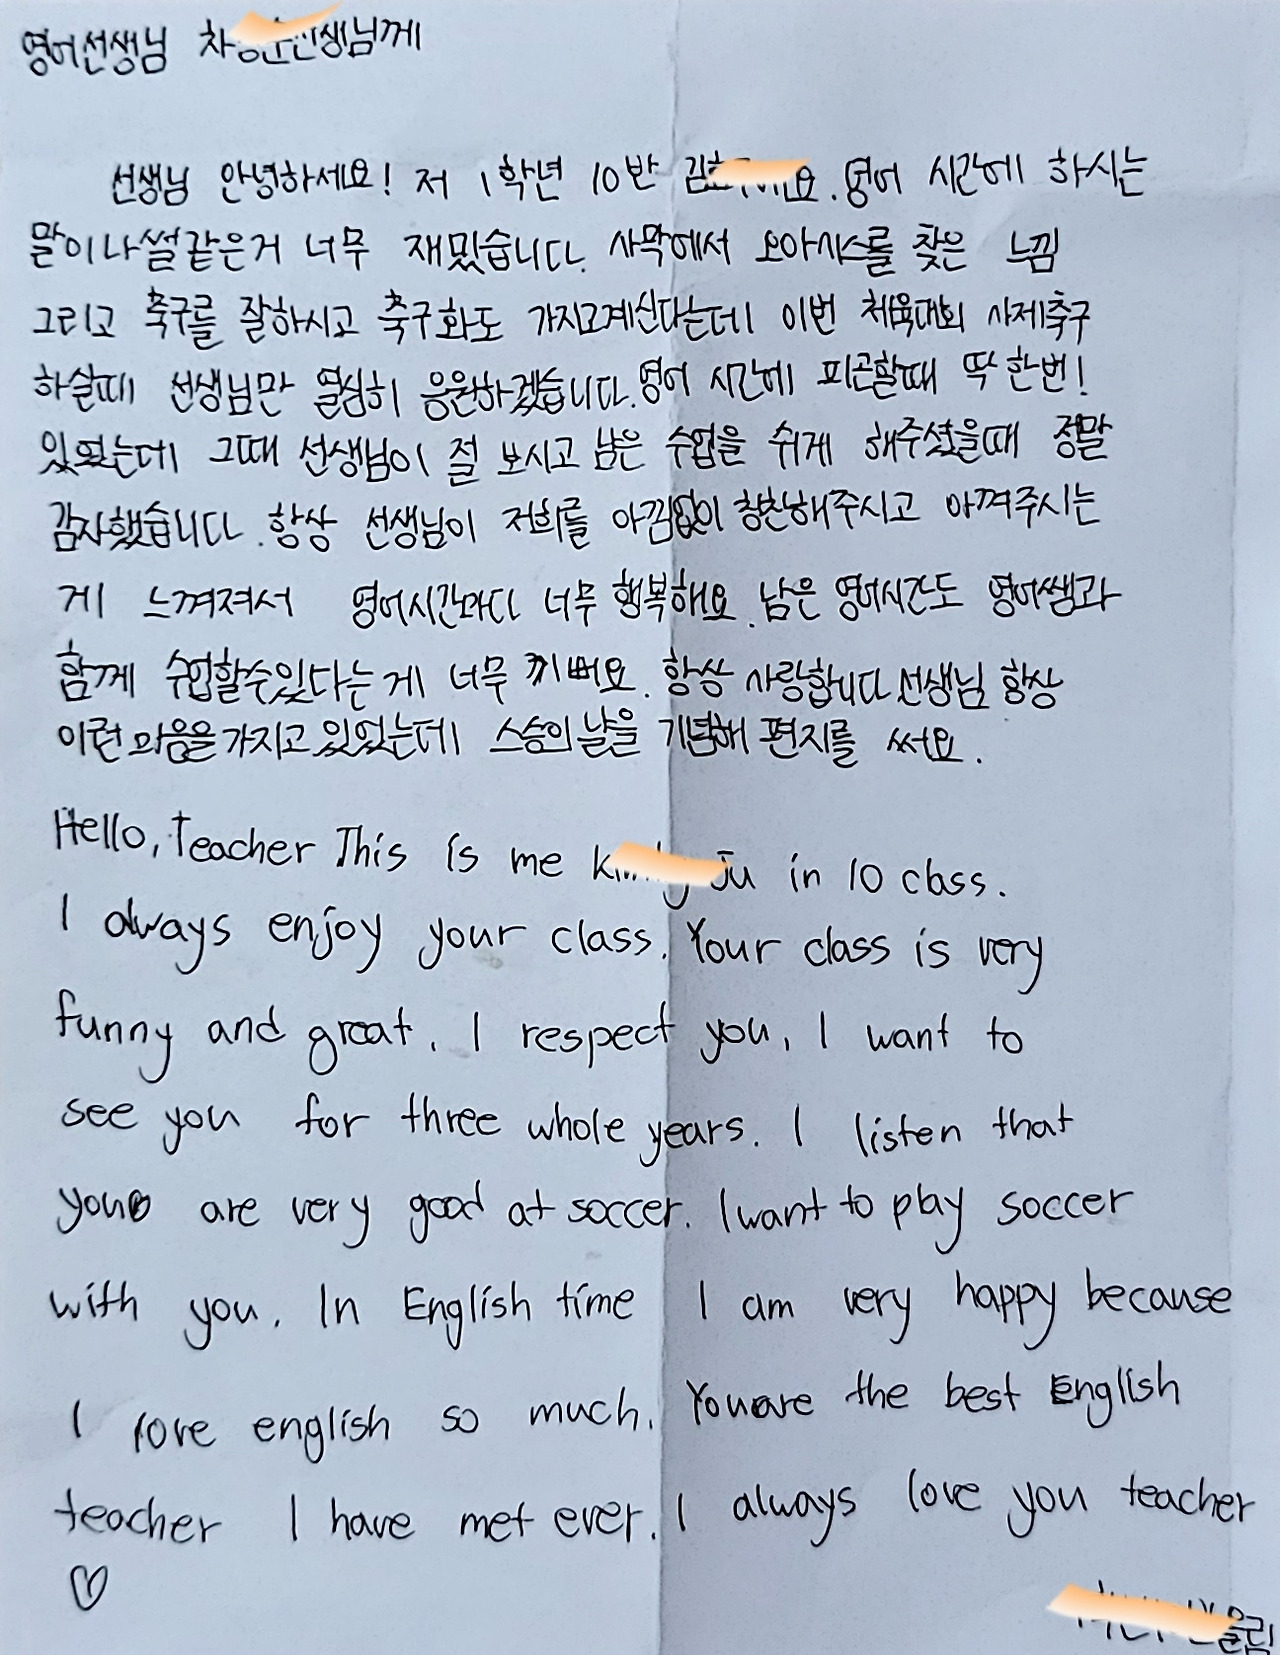 영어선생님 선생님께
선생님 안녕하세요! 저 1학년 10반 영어 시간에 하시는
말이나 썰같은거 너무 재밌습니다. 사막에서 오아시스를 찾은 느낌
그리고 축구를 잘하시고 축구화도 가지고계신다는데 이번 체육대회 사제축구
하실때 선생님만 열심히 응원하겠습니다. 영어 시간에 피곤할때 딱 한번!
있었는데 그때 선생님이 절 보시고 남은 수업을 쉬게 해주셨을때 정말
감사했습니다. 항상 선생님이 저희를 아낌없이 칭찬해주시고 아껴주시는
게 느껴져서 영어시간마다 너무 행복해요. 남은 영어시간도 영어쌤과
함께 수업할수있다는게 너무 기뻐요. 항상 사랑합니다 선생님 항상
이런 마음을 가지고 있었는데 스승의날을 기념해 편지를 써요.
Hello, Teacher This is me Ju in 10 class.
I always enjoy your class. Your class is very
funny and great. I respect you. I want to
see you for three whole years. I listen that
you are very good at soccer. I want to play soccer
with you. In English time I am very happy because
I love english so much. You are the best English
teacher I have met ever. I always love you teacher
♡
올림